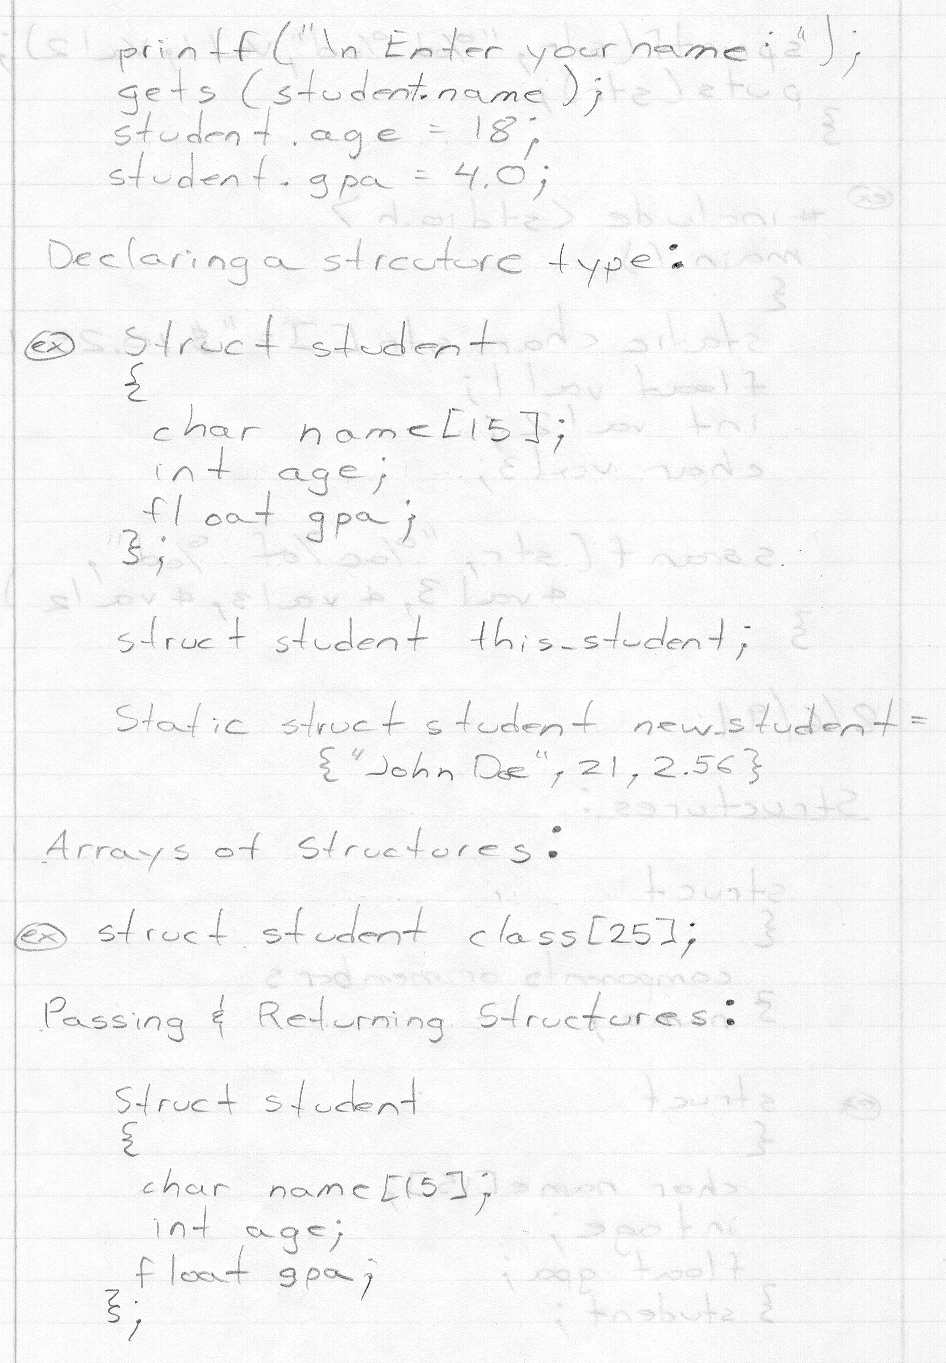 printf("\n Enter your name: ");
gets (student.name);
student.age = 18;
student.gpa = 4.0;
Declaring a strcuture type:
ex Struct student
{
char name[15];
int age;
float gpa;
};
struct student this_student;
Static struct student new_student =
{"John Doe", 21, 2.56}
Arrays of Structures:
ex struct student class[25];
Passing & Returning Structures:
Struct student
{
char name[15];
int age;
float gpa;
};